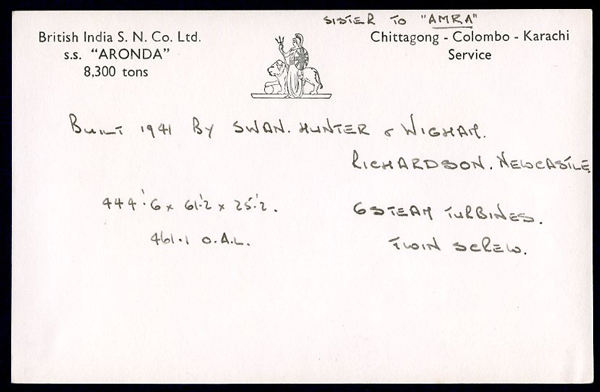 SISTER TO "AMRA"
British India S. N. Co. Ltd.
s.s. "ARONDA"
8,300 tons
Chittagong - Colombo - Karachi
Service
BUILT 1941 BY SWAN. HUNTER & WIGHAM.
RICHARDSON. NEWCASTLE
444'.6 x 61.2 x 25'.2.
461.1 O.A.L.
6 STEAM TURBINES.
TWIN SCREW.